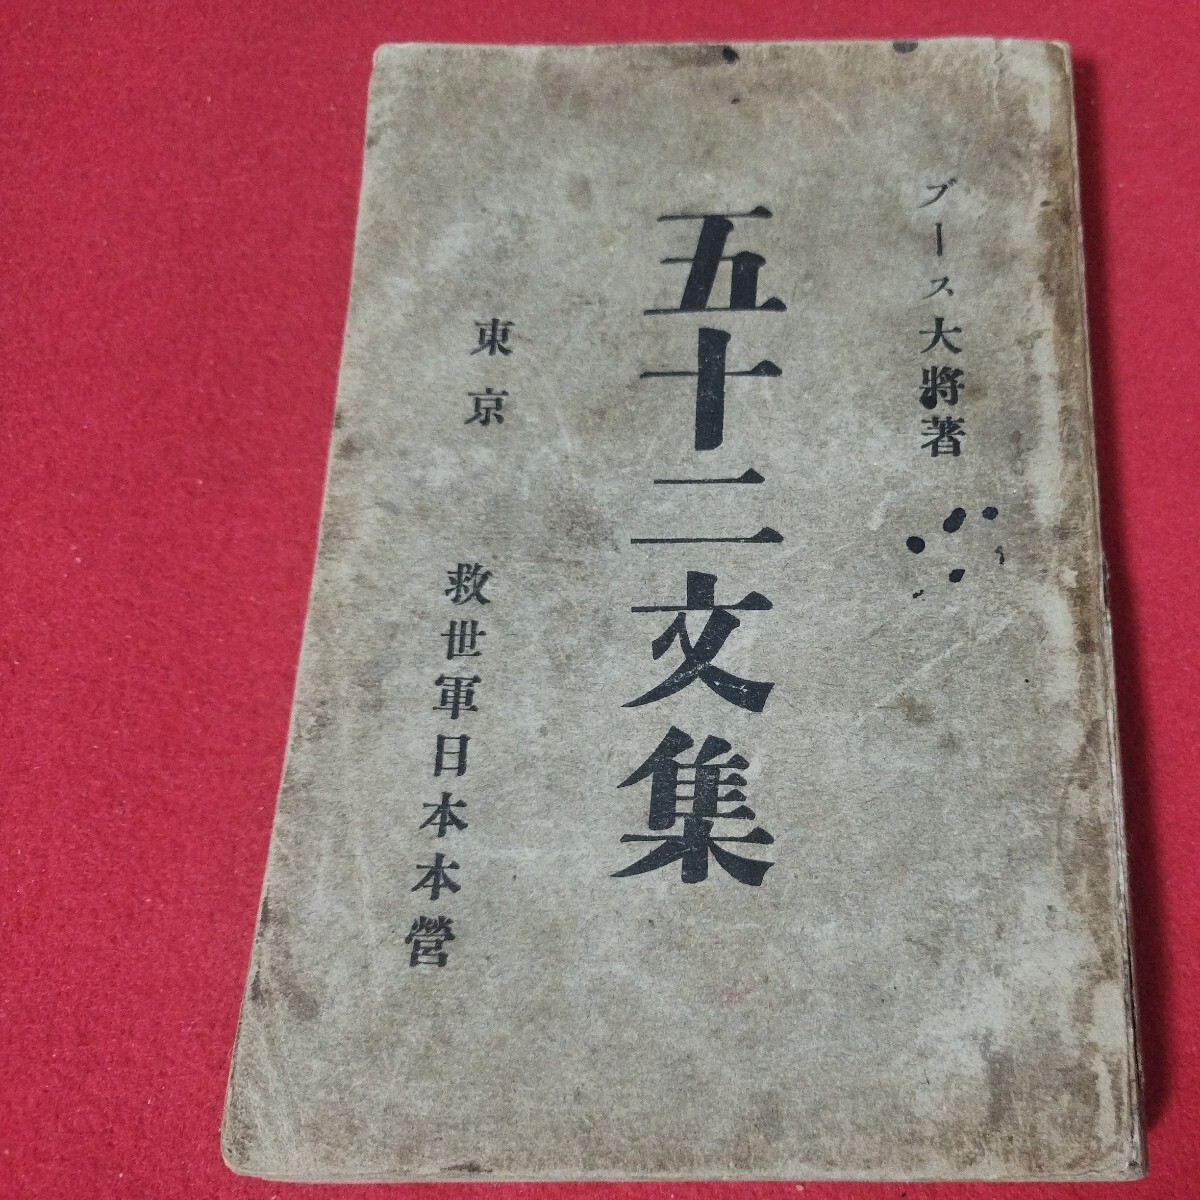 ブース大將著
五十二文集
東京 救世軍日本本營